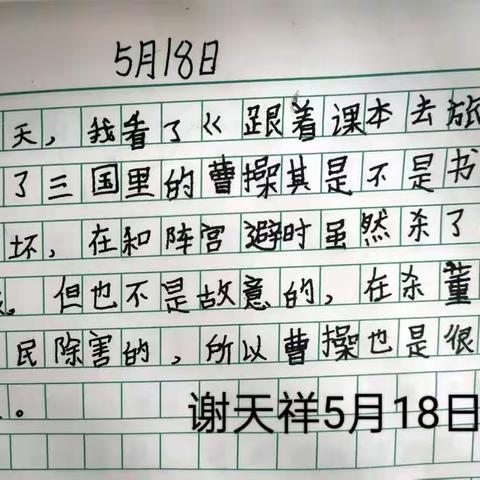 5月18日
天，我看了《跟着课本去旅
了三国里的曹操其是不是书
坏，在和阵宫避时虽然杀了
但也不是故意的，在杀董
民除害的，所以曹操也是很
。
谢天祥5月18日